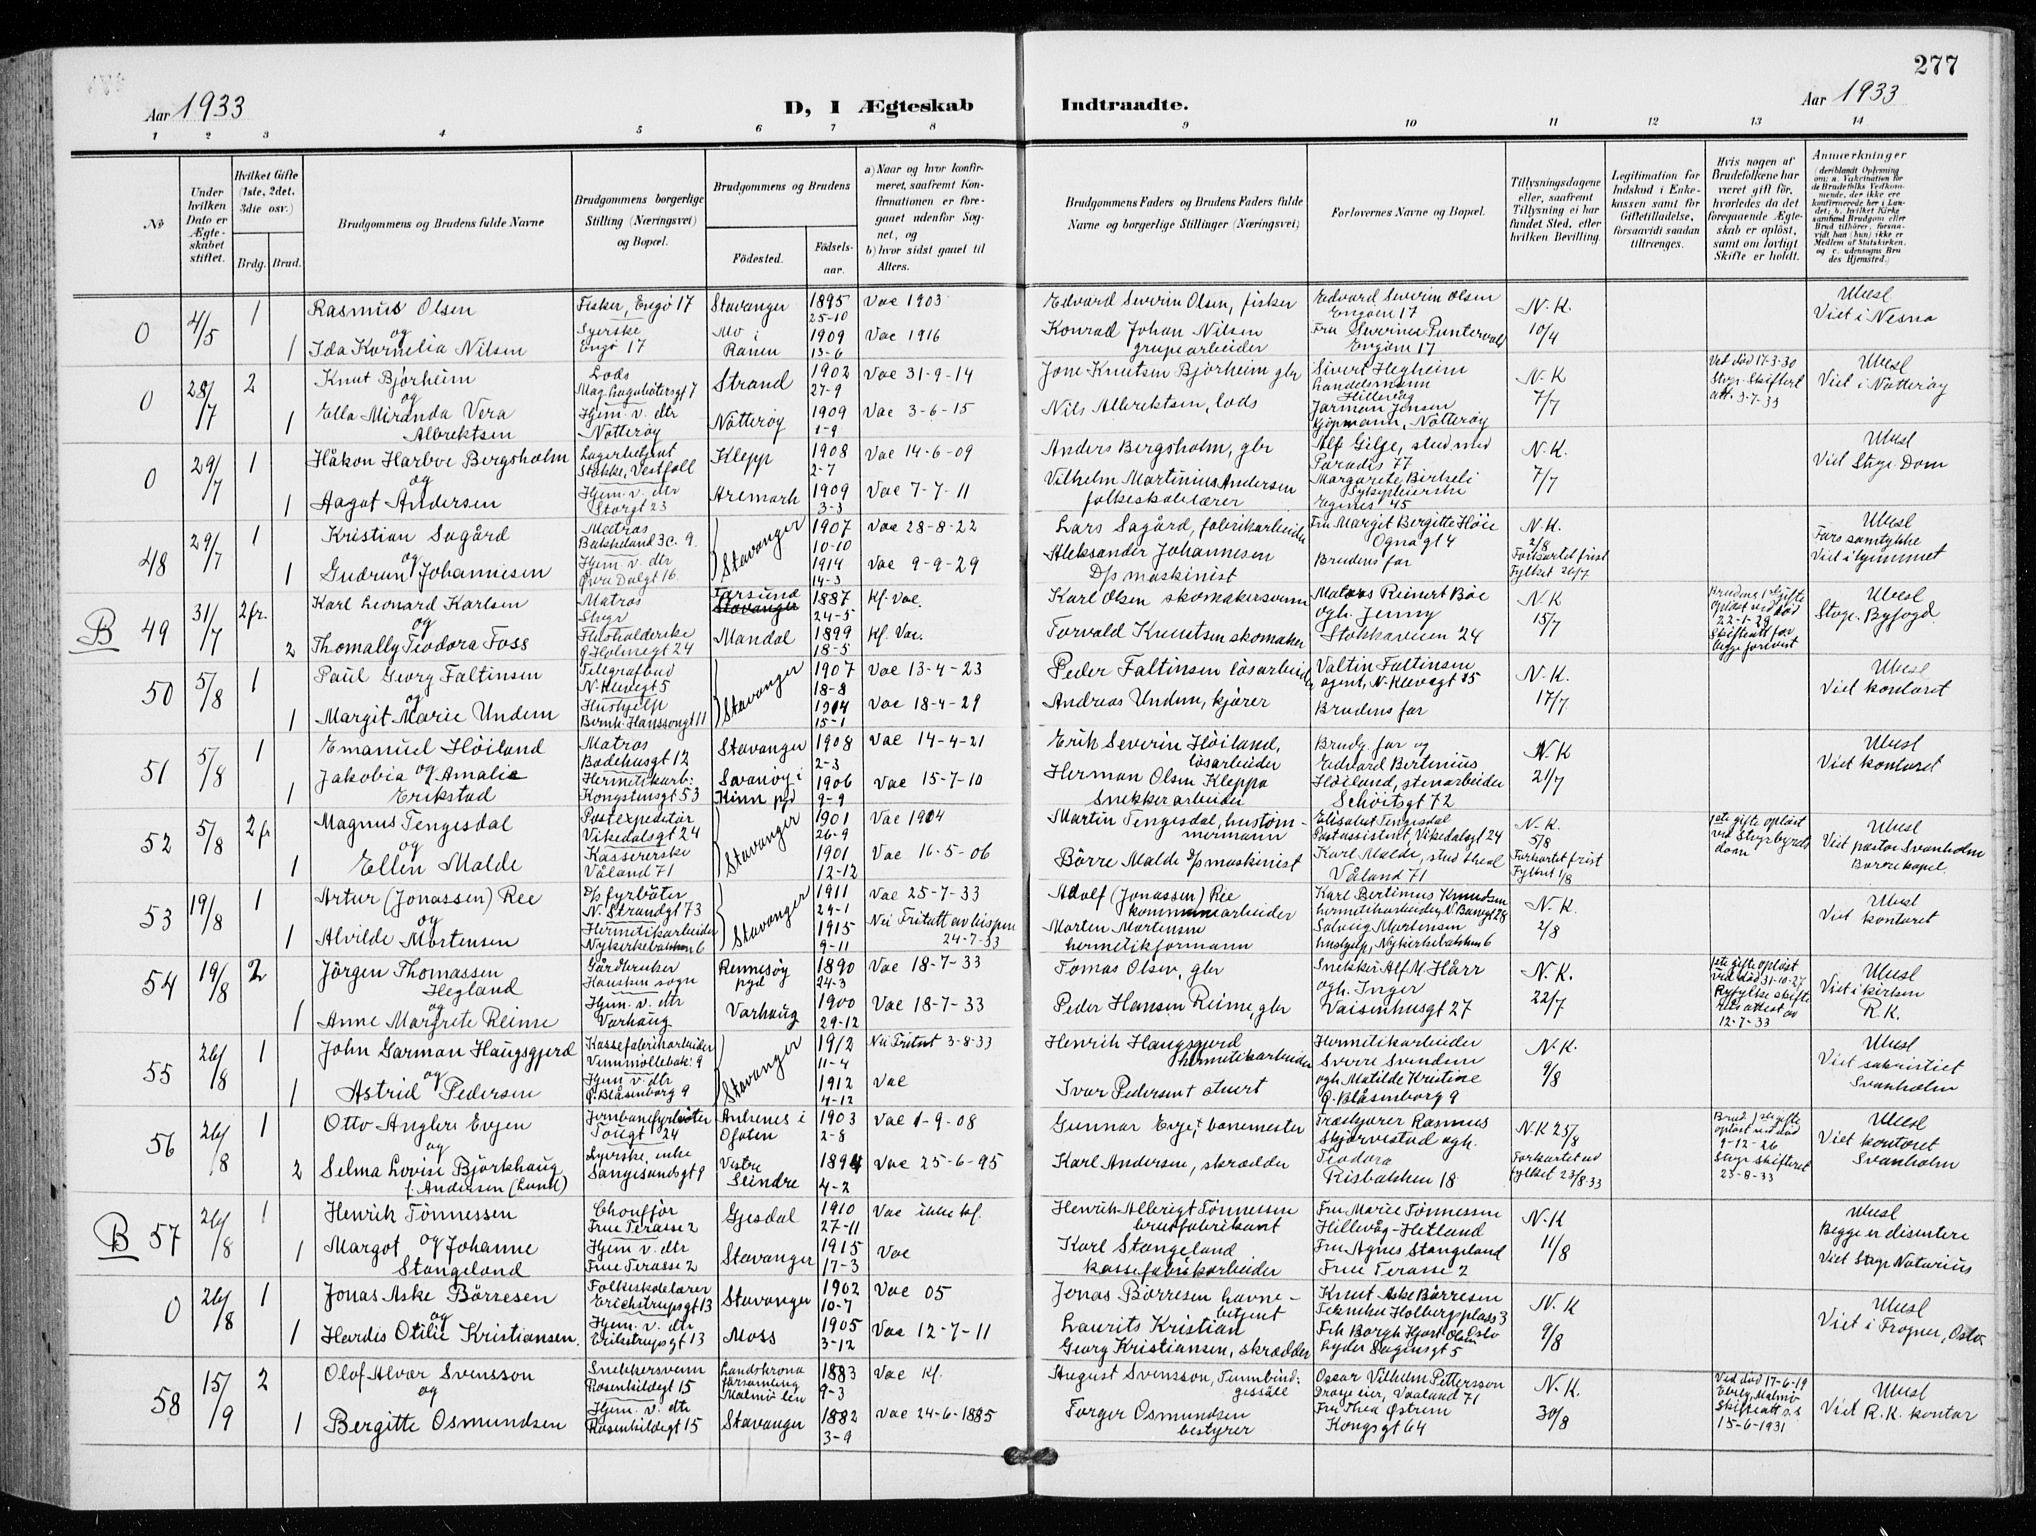 277
Aar 1933
D, I Ægteskab
Indtraadte.
Aar 1933
1 2 3 4 5 6 7 8 9 10 11 12 13 14
No
Under hvilken Dato er Ægteskabet stiftet.
Hvilket Gifte (1ste, 2det, 3die osv.)
Brdg. Brud.
Brudgommens og Brudens fulde Navne
Brudgommens borgerlige Stilling (Næringsvei) og Bopæl.
Brudgommens og Brudens
Fødested.
Fødselsaar.
a) Naar og hvor konfirmeret, saafremt Konfirmationen er foregaaet udenfor Sognet, og
b) hvor sidst gaaet til Alters.
Brudgommens Faders og Brudens Faders fulde Navne og borgerlige Stillinger (Næringsvei)
Forlovernes Navne og Bopæl.
Tillysningsdagene eller, saafremt Tillysning ei har fundet Sted, efter hvilken Bevilling.
Legitimation for Indskud i Enkekassen samt for Giftetilladelse, forsaavidt saadan tiltrænges.
Hvis nogen af Brudefolkene har været gift før, hvorledes da det foregaaende Ægteskab er opløst, samt om lovligt Skifte er holdt.
Anmærkninger
0 4/5 1 Rasmus Olsen Fisker, Engø 17 Stavanger 1895 25-10 Vac 1903 Edvard Severin Olsen, fisker Edvard Severin Olsen Engøen 17 N.K. 10/4 Ubesl Viet i Nesna
og
1 Ida Kornelia Nilsen Syerske Engø 17 Mo i Ranen 1909 13-6 Vac 1916 Konrad Johan Nilsen grupearbeider Fru Severine Puntervold Engøen 17
0 28/7 2 Knut Bjørheim Lods Mag. Lagabøtersgt 7 Strand 1902 27-9 Vac 31-9-14 Jone Knutsen Bjørheim gbr Sivert Hegheim Landelsmann Hillevåg N.K 7/7 Ved død 17-3-30 Stvgr. Skifterl att. 3-7-33 Ubesl Viet i Nøtterøy
og
1 Ella Miranda Vera Albrektsen Hjem. v. dtr Nøtterøy Nøtterøy 1909 1-9 Vac 3-6-15 Nils Albrektsen, lods Jarman Jensen Kjøpmann, Nøtterøy
0 29/7 1 Håkon Harbve Bergsholm Lagerbetjent Stokke, Vestfoll Klepp 1908 2-7 Vac 14-6-09 Anders Bergsholm, gbr Alf Gilje, stud med Paradis 77 N.K. 7/7 Ubesl Viet Stvgr. Dom
og
1 Aagot Andersen Hjem. v. dtr Storgt 23 Aremark 1909 3-3 Vac 7-7-11 Vilhelm Martinius Andersen folkeskolelærer Margarete Birkeli Sykepleierske Eiganes 45
48 29/7 1 Kristian Sagård Matros Bakkeland 3c. 9. Stavanger 1907 10-10 Vac 28-8-22 Lars Sagård, fabrikarbeider Fru Margit Bergitte Høie Ognagt 4 N.K. 2/8 Ubesl Fars samtykke Viet i hjemmet
og
1 Gudrun Johannesen Hjem v. dtr Øvre Dalgt 16 1914 14-3 Vac 9-9-29 Aleksander Johannesen D/s maskinist Brudens far Forkortet frist Fylket 26/7
B 49 31/7 2 fr. Karl Leonard Karlsen Matros Stvgr Farsund 1887 24-5 Kf. Vac. Karl Olsen skomakersvenn Matros Reinert Bøe ogh. Jenny N.K 15/7 Brudens 1ste gifte opløst ved død 22-1-29 Skifteatt for begge forevist Ubesl Stvgr. Byfogd
og
2 Thomally Teodora Foss Husholderske Ø Holmegt 24 Mandal 1899 18-5 Kf. Vac. Torvald Knutsen skomaker Stokkaveien 24
50 5/8 1 Paul Georg Faltinsen Telegrafbud N. Klevegt 5 Stavanger 1907 18-8 Vac 13-4-23 Peder Faltinsen løsarbeider Valtin Faltinsen agent, N. Klevegt 15 N.K. 17/7 Ubesl Viet kontoret
og
1 Margit Marie Undem Hushjelp Bernh. Hanssonsgt 11 1904 15-1 Vac 18-4-29 Andreas Undem, kjører Brudens far
51 5/8 1 Emanuel Høiland Matros Badehusgt 12 Stavanger 1908 2-3 Vac 14-4-21 Erik Severin Høiland, løsarbeider Brudg. far og Edvard Bertinius N.K 21/7 Ubesl Viet kontoret
1 Jakobia og Amalie Erikstad Hermetikarb: Kongstensgt 53 Svanøy i Kinn pgd 1906 9-9 Vac 15-7-10 Herman Olsen Kleppa Snekkerarbeider Høiland, stenarbeider Schøitsgt 72
52 5/8 2 fr Magnus Tengesdal Postexpeditør Vikedalsgt 24 Stavanger 1901 26-9 Vac 1904 Martin Tengesdal, hustømmermann Elisabet Tengesdal Postassistent, Vikedalsgt 24 N.K. 5/8 1ste gifte opløst ved Stvgr byretts dom Ubesl Viet pastor Svanholm Borrekapel
og
1 Ellen Malde Kassererske Våland 71 1901 12-12 Vac 16-5-06 Børre Malde D/s maskinist Karl Malde, stud theol Våland 71 Forkortet frist Fylket 1/8
53 19/8 1 Artur (Jonassen) Ree D/s fyrbøter N. Strandgt 73 Stavanger 1911 29-1 Vac 25-7-33 Adolf (Jonassen) Ree kommunearbeider Karl Bertinius Knudsen hermetikarbeider, N. Banegt 28 N.K. 2/8 Ubesl Viet kontoret
og
1 Alvilde Mortensen Hermetikarbeider Nykirkebakken 6 1915 9-11 Nei Fritatt av bispen 24-7-33 Morten Mortensen hermetikformann Solveig Mortensen hushjelp, Nykirkebakken 6
54 19/8 2 Jørgen Thomassen Hegland Gårdbruker Hausken sogn Rennesøy pgd 1890 24-3 Vac 18-7-33 Tomas Olsen, gbr Snekker Alf M. Hårr ogh. Inger N.K. 22/7 1ste gifte opløst ved død 31-10-27 Ryfylke skifterets attest av 12-7-33 Ubesl Viet i kirken R.K.
og
1 Anne Margrete Reime Hjem. v. dtr Varhaug Varhaug 1900 29-12 Vac 18-7-33 Peder Hansen Reime, gbr Vaisenhusgt 27
55 26/8 1 John Garman Haugsgjerd Kassefabrikarbeider Vinnmøllebak. 9 Stavanger 1912 11-4 Nei Fritatt 3-8-33 Henrik Haugsgjerd hermetikarbeider Hermetikarbeider Sverre Svendsen N.K. 9/8 Ubesl Viet sakristiet Svanholm
og
1 Astrid Pedersen Hjem v. dtr Ø. Blåsenborg 9 1912 4-12 Vac Ivar Pedersen† stuert ogh Matilde Kristine Ø. Blåsenborg 9
56 26/8 1 Otto Angler Evjen Jernbanefyrbøter Torigt 24 Ankenes i Ofoten 1903 2-8 Vac 1-9-08 Gunnar Evje† banemester Træskjærer Rasmus Skjørvestad ogh. N.K 25/8 Brud. 1ste gifte opløst ved død 9-12-26 Stvgr Skifteret 23-8-33 Ubesl Viet kontoret Svanholm
og
2 Selma Lovise Bjørkhaug f. Andersen (Lund) Syerske, enke Sangesandsgt 9 Vestre Slindre 1894 4-2 Vac 25-6-95 Karl Andersen, skrædder Teodora Risbakken 18 Forkortet av fylket 23/8.33
B 57 26/8 1 Henrik Tønnessen Chouffør Frue Terasse 2 Gjesdal 1910 27-11 Vac ikke kf. Henrik Albrigt Tønnesen brusfabrikant Fru Marie Tønnessen Hillevåg-Hetland N.K 11/8 Ubesl Begge er disentere Viet Stvgr Notarius
1 Margot og Johanne Stangeland Hjem v. dtr Frue Terasse 2 Stavanger 1915 17-3 Vac Karl Stangeland kassefabrikarbeider Fru Agnes Stangeland Frue Terasse 2
0 26/8 1 Jonas Aske Børresen Folkeskolelærer Erichstrupsgt 13 Stavanger 1902 10-7 Vac 05 Jonas Børresen havnebetjent Knut Aske Børresen Tekniker Holbergsplass 3 Oslo N.K 9/8 Ubesl Viet i Frogner, Oslo
og
1 Herdis Otilie Kristiansen. Hjem. v. dtr Erikstrupsgt 13 Moss 1905 3-12 Vac 12-7-11 Laurits Kristian Georg Kristiansen, skrædder Frk Borgh Hjort Olsen Lyder Sagensgt 5
58 15/9 2 Olof Alvar Svensson Snekkersvenn Rosenkildegt 15 Landskrona församling Malmö len 1883 9-3 Vac Kf. August Svensson, Tunnbindgesäle Oscar Vilhelm Pettersson Drosjeeier, Vaaland 71 N.K. 30/8 Ved død 17-6-19 Malmö Skifteatt o.s 15-6-1931 Ubesl Viet R.K. kontor
og
1 Bergitte Osmundsen Hjem v. dtr Rosenkildegt 15 Stavanger 1882 3-9 Vac 24-6-1885 Torger Osmundsen bestyrer Fru Thea Østrem Kongsgt 64